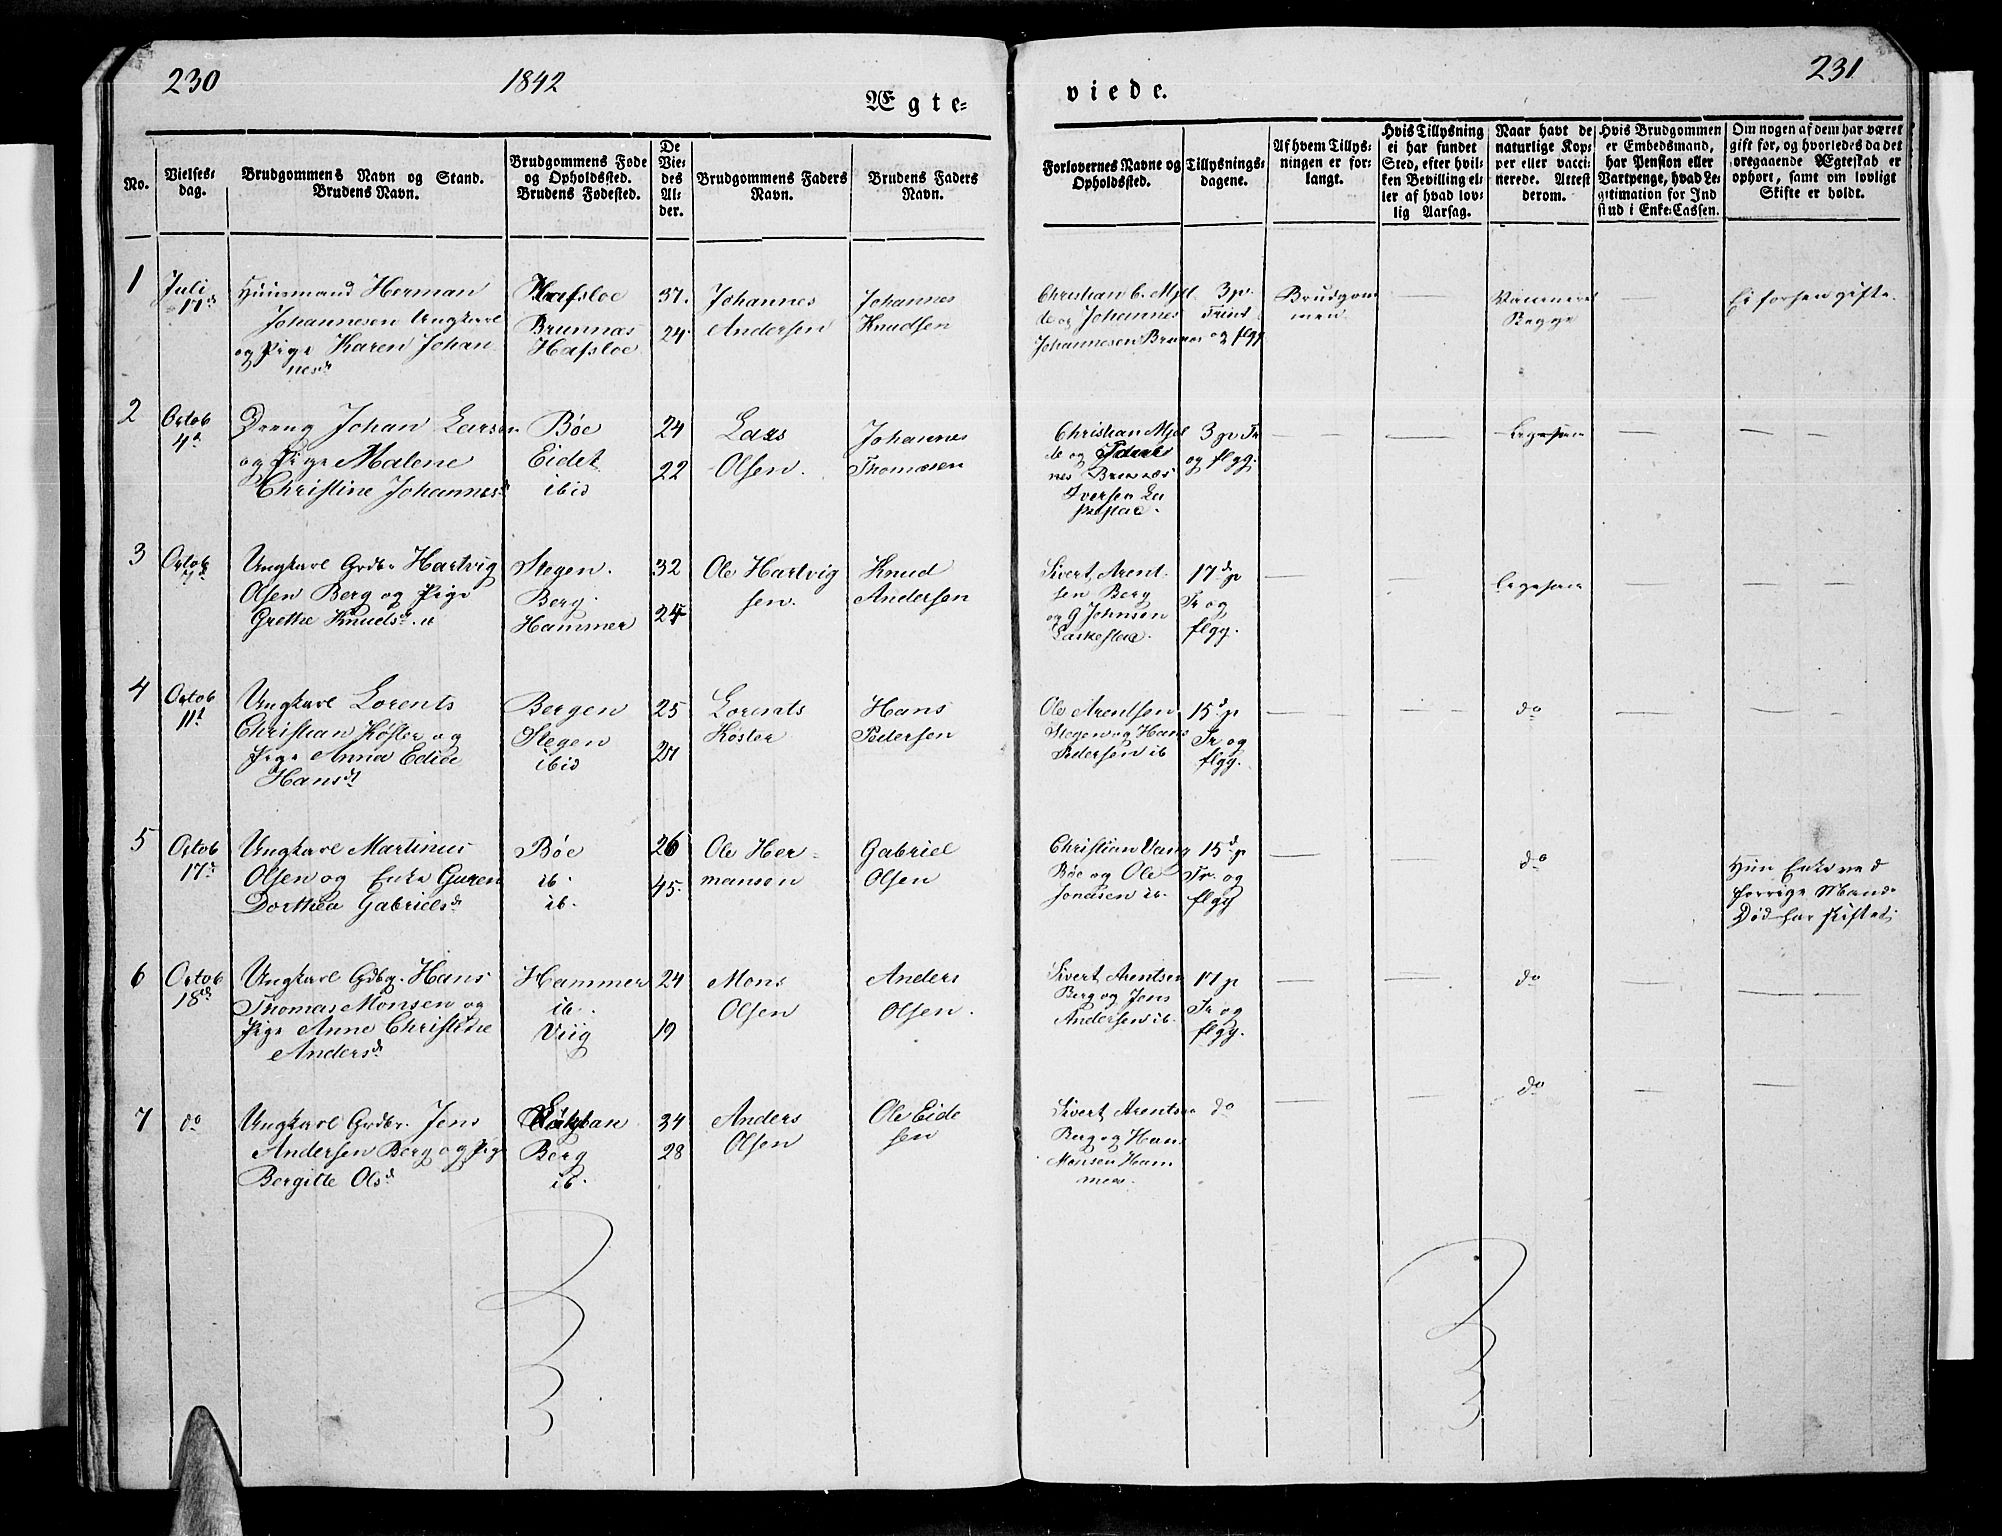 230
1842
Ægte=
viede.
231
No.
Vielses=
dag.
Brudgommens Navn og Stand.
Brudens Navn.
Brudgommens Føde
og Opholdsted.
Brudens Fødested.
De
Vie=
des
Al=
der.
Brudgommens Faders
Navn.
Brudens Faders
Navn.
Forlovernes Navne og
Opholdssted.
Tillysnings=
dagene.
Af hvem Tillys=
ningen er for=
langt.
Hvis Tillysning
ei har fundet
Sted, efter hvil=
ken Bevilling el=
ler af hvad lov=
lig Aarsag.
Naar havt de
naturlige Kop=
per eller vacci=
nerede. Attest
derom.
Hvis Brudgommen
er Embedsmand,
har Pension eller
Vartpenge, hvad Le=
gitimation for Ind
skud i Enke=Cassen.
Om nogen af dem har været
gift før, og hvorledes da det
ortgaaende Ægteskab er
ophørt, samt om lovligt
Skifte er holdt.
1
Juli
17d
Huusmand Herman
Johannesen Ungkarl
og Pige Karen Johan
nesd
Hafsloe
Brunnas
Hafsloe
37.
24
Johannes
Andersen
Johannes
Knudsen
Christian C. Mjel
de og Johannes
Johannesen Brunes
3 p.
Trint
og flgg
Brudgom
men
Vaccineret
Begge
Ei forhen gifte.
2
Octob
4d
Dreng Johan Larsen
og Pige Malene
Christine Johannesd
Bøe
Eidet
ibid
24
22
Lars
Olsen.
Johannes
Thomesen
Christian Mjel
de og
Iversen
3 p Tr
og flgg.
Ligesaa
3
Octob
7d
Ungkarl Grdbr Hartvig
Olsen Berg og Pige
Grethe Knudsd.
Stegen.
Berg.
Hammer
32
24
Ole Hartvig
sen.
Knud
Andersen
Sivert Arent
sen Berg
og G Johnsen
17d p
Tr og
flgg.
Ligesaa
4
Octob
11d
Ungkarl Lorents
Christian Køsler og
Pige Anna Edice
Hansd
Bergen
Stegen
ibid
25
27
Lorents
Køsler
Hans
Pedersen
Ole Arentsen
Stegen og Hans
Pedersen ib
15d p
Tr. og
flgg.
do
5
Octob
17d
Ungkarl Martinus
Olsen og Enke Guren
Dorthea Gabrielsd
Bøe
ib.
ib.
26
45.
Ole Her=
mansen
Gabriel
Olsen
Christian Vang
Bøe og Ole
Jonasen ib.
15d p
Tr. og
flgg
do
Hun Enke ved
forrige Mands
Død har skiftet
6
Octob
18d
Ungkarl Gdbg. Hans
Thomas Monsen og
Pige Anne Christine
Andersd
Hammer
ib.
Viig
24
19
Mons
Olsen
Anders
Olsen.
Sivert Arentsen
Berg og Jens
Andersen ib.
17 p
Tr og
flgg.
do
7
do
Ungkarl Grdbr. Jens
Andersen Berg og Pige
Bergitte Olsd
Berg
ib.
34
28
Anders
Olsen
Ole Eide
sen
Sivert Arentsen
Berg og Hans
Monsen Ham
mer.
do
do